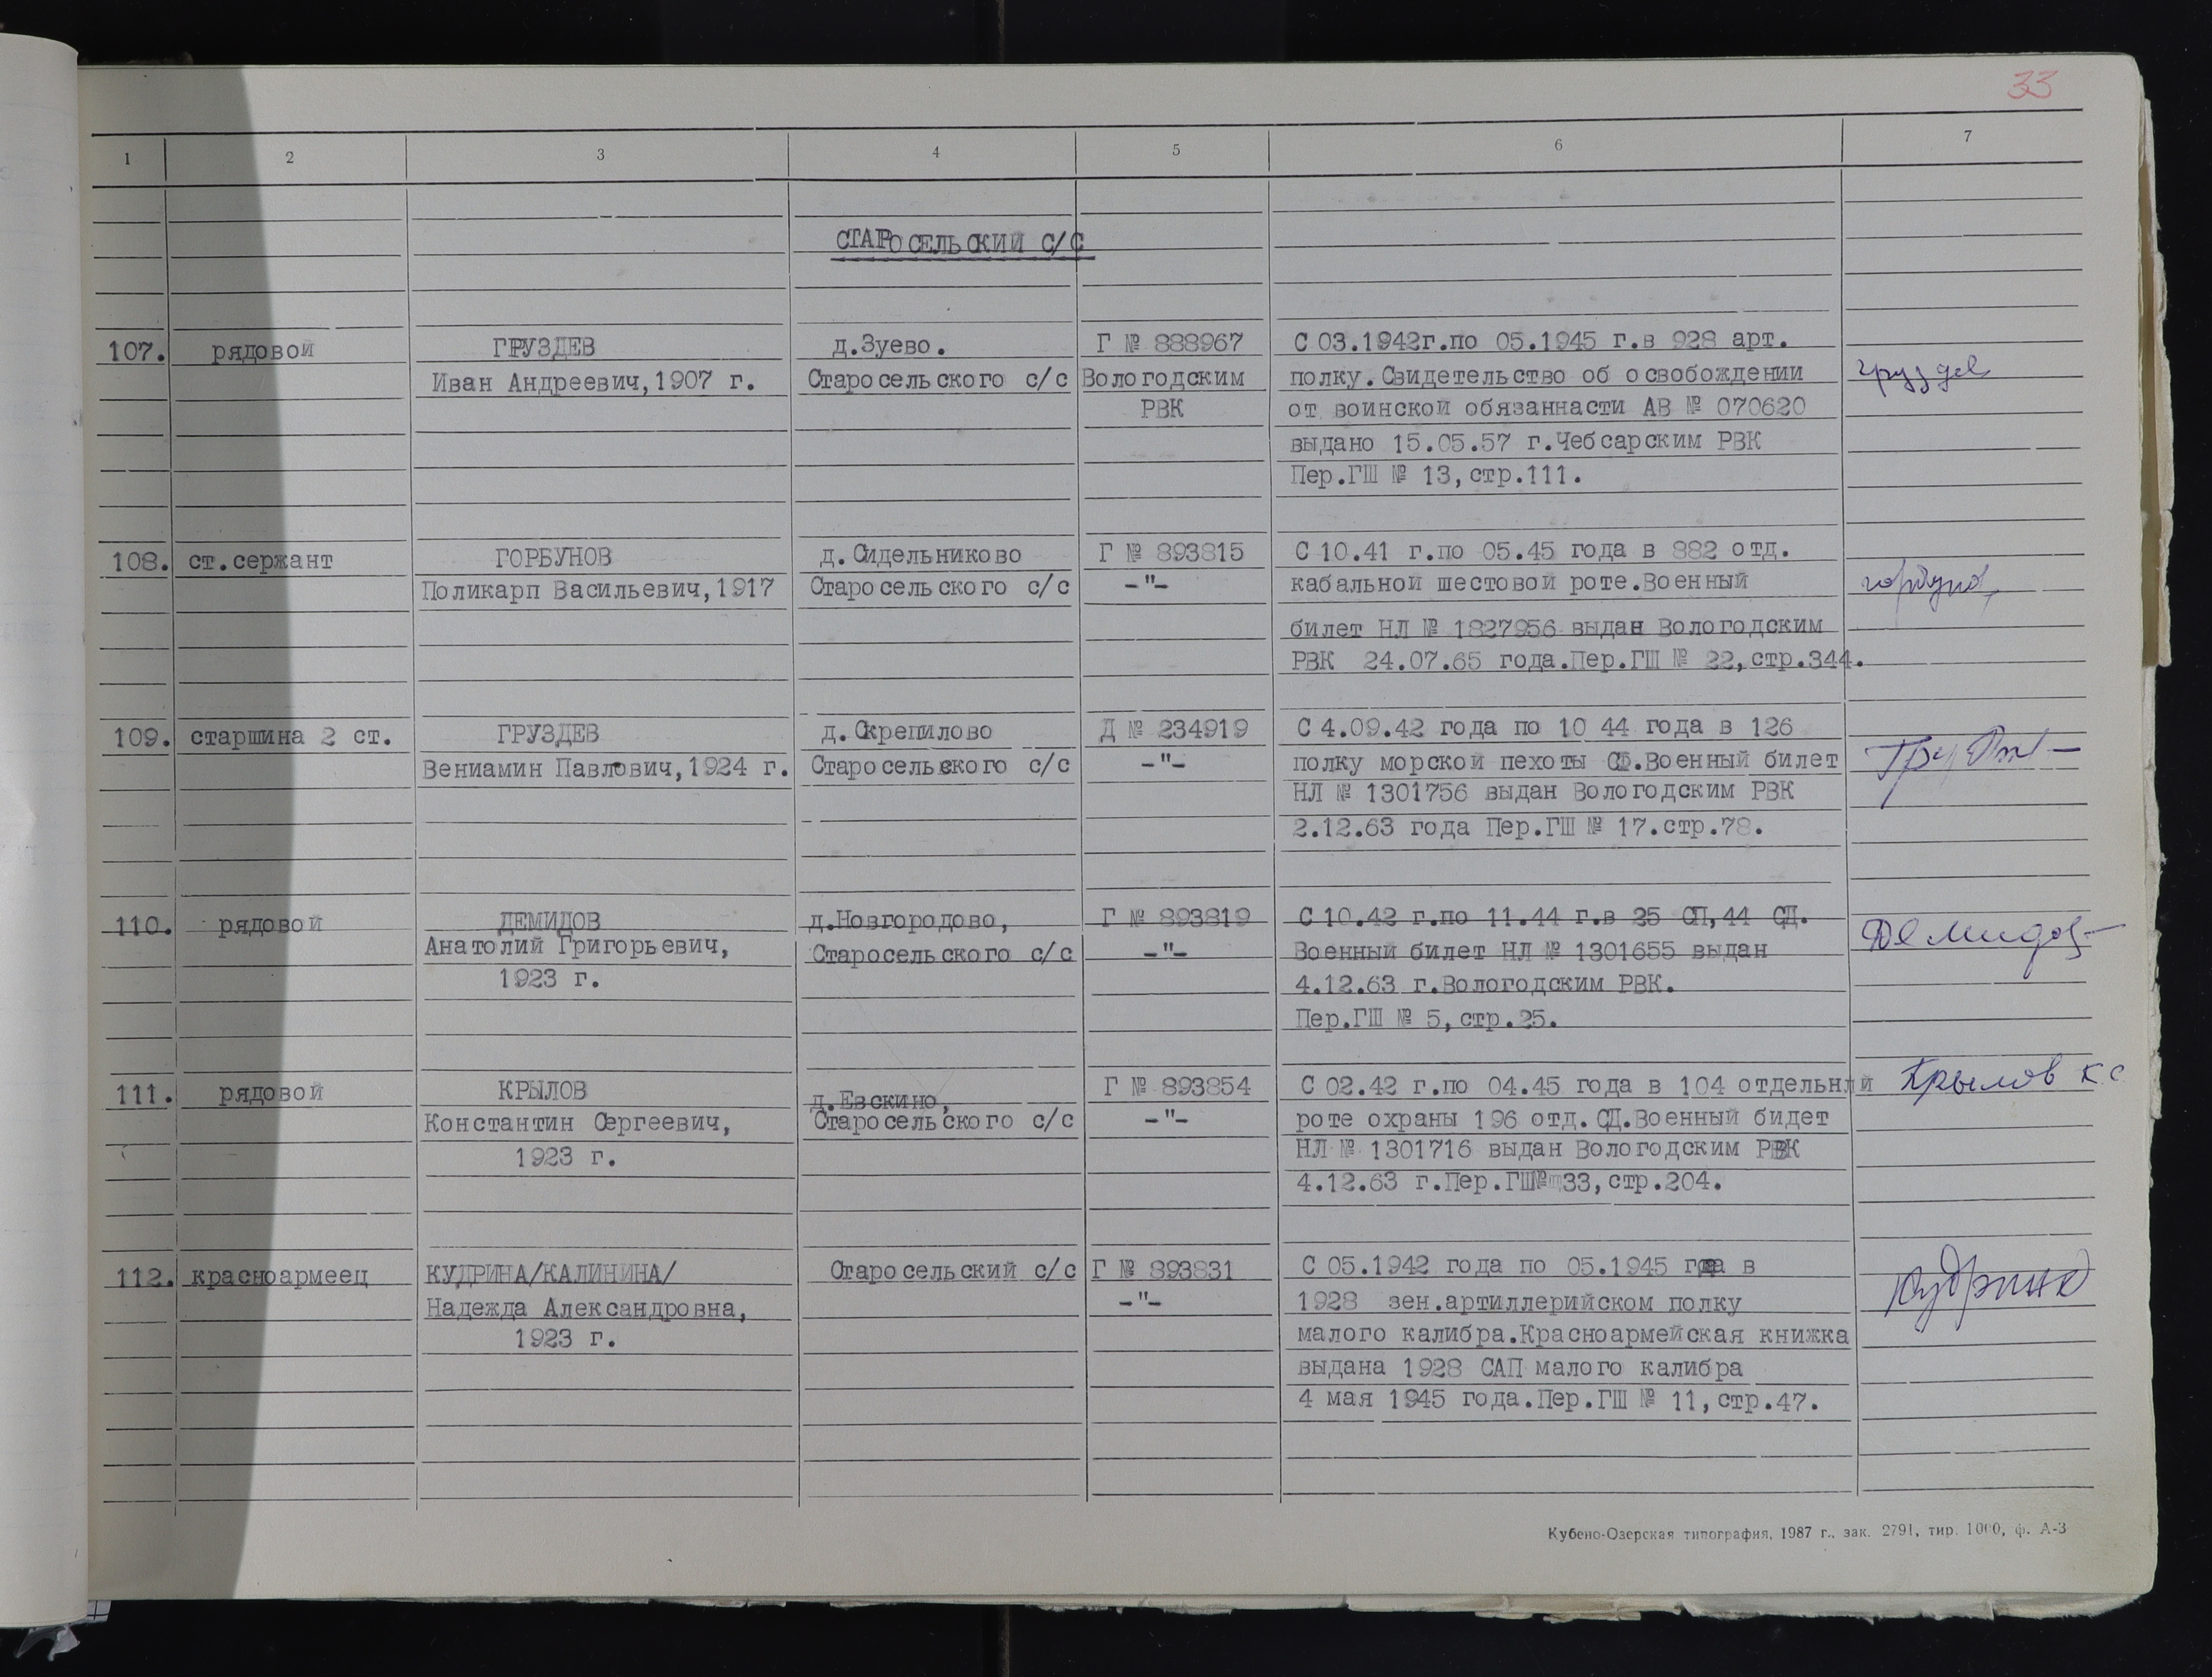 33
1 2 3 4 5 6 7
СТАРОСЕЛЬСКИЙ С/С
107. рядовой ГРУЗДЕВ д.Зуево. Г № 888967 С 03.1942г.по 05.1945 г.в 928 арт.
Иван Андреевич,1907 г. Старосельского с/с Вологодским полку.Свидетельство об освобождении груздев
РВК от воинской обязаннасти АВ № 070620
выдано 15.05.57 г.Чебсарским РВК
Пер.ГШ № 13,стр.111.
108. ст.сержант ГОРБУНОВ д.Сидельниково Г № 893815 С 10.41 г.по 05.45 года в 882 отд.
Поликарп Васильевич,1917 Старосельского с/с -"- кабальной шестовой роте.Военный горбунов
билет НЛ № 1827956 выдан Вологодским
РВК 24.07.65 года.Пер.ГШ № 22,стр.344.
109. старшина 2 ст. ГРУЗДЕВ д.Скрепилово Д № 234919 С 4.09.42 года по 10 44 года в 126
Вениамин Павлович,1924 г. Старосельского с/с -"- полку морской пехоты СФ.Военный билет
НЛ № 1301756 выдан Вологодским РВК
2.12.63 года Пер.ГШ № 17.стр.78.
110. рядовой ДЕМИДОВ д.Новгородово, Г № 893819 С 10.42 г.по 11.44 г.в 25 СП,44 СД.
Анатолий Григорьевич, Старосельского с/с -"- Военный билет НЛ № 1301655 выдан Демидов
1923 г. 4.12.63 г.Вологодским РВК.
Пер.ГШ № 5,стр.25.
111. рядовой КРЫЛОВ д.Евскино, Г № 893854 С 02.42 г.по 04.45 года в 104 отдельнлй Крылов К С
Константин Сергеевич, Старосельского с/с -"- роте охраны 196 отд.СД.Военный бидет
1923 г. НЛ № 1301716 выдан Вологодским РВК
4.12.63 г.Пер.ГШ№ 33,стр.204.
112. красноармеец КУДРИНА/КАЛИНИНА/ Старосельский с/с Г № 893831 С 05.1942 года по 05.1945 года в
Надежда Александровна, -"- 1928 зен.артиллерийском полку Кудрина
1923 г. малого калибра.Красноармейская книжка
выдана 1928 САП малого калибра
4 мая 1945 года.Пер.ГШ № 11,стр.47.
Кубено-Озерская типография, 1987 г., зак. 2791, тир. 1000, ф. А-3